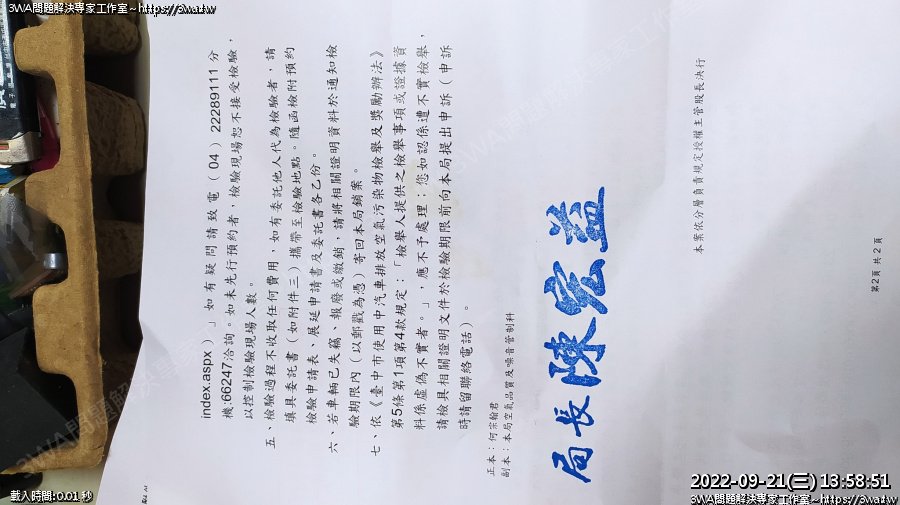 3WA問題解決專家工作室~https://3wa.tw
index.aspx)」如有疑問請致電(04)22289111分
機:66247洽詢。如未先行預約者,檢驗現場恕不接受檢驗,
以控制檢驗現場人數。
五、檢驗過程不收取任何費用,如有委託他人代為檢驗者,請
填具委託書(如附件三)攜帶至檢驗地點。隨函檢附預約
檢驗申請表、展延申請書及委託書各乙份。
六、若車輛已失竊、報廢或繳銷,請將相關證明資料於通知檢
驗期限內(以郵戳為憑)寄回本局銷案。
七、依《臺中市使用中汽車排放空氣污染物檢舉及獎勵辦法》
第5條第1項第4款規定:「檢舉人提供之檢舉事項或證據資
料係虛偽不實者。」,應不予處理;您如認係遭不實檢舉,
請檢具相關證明文件於檢驗期限前向本局提出申訴(申訴
時請留聯絡電話)。
正本:何宗翰君
副本:本局空氣品質及噪音管制科
局長陳宏益
本案依分層負責規定授權主管股長決行
第2頁 共2頁
2022-09-21(三) 13:58:51
載入時間:0.01 秒
3WA問題解決專家工作室~https://3wa.tw